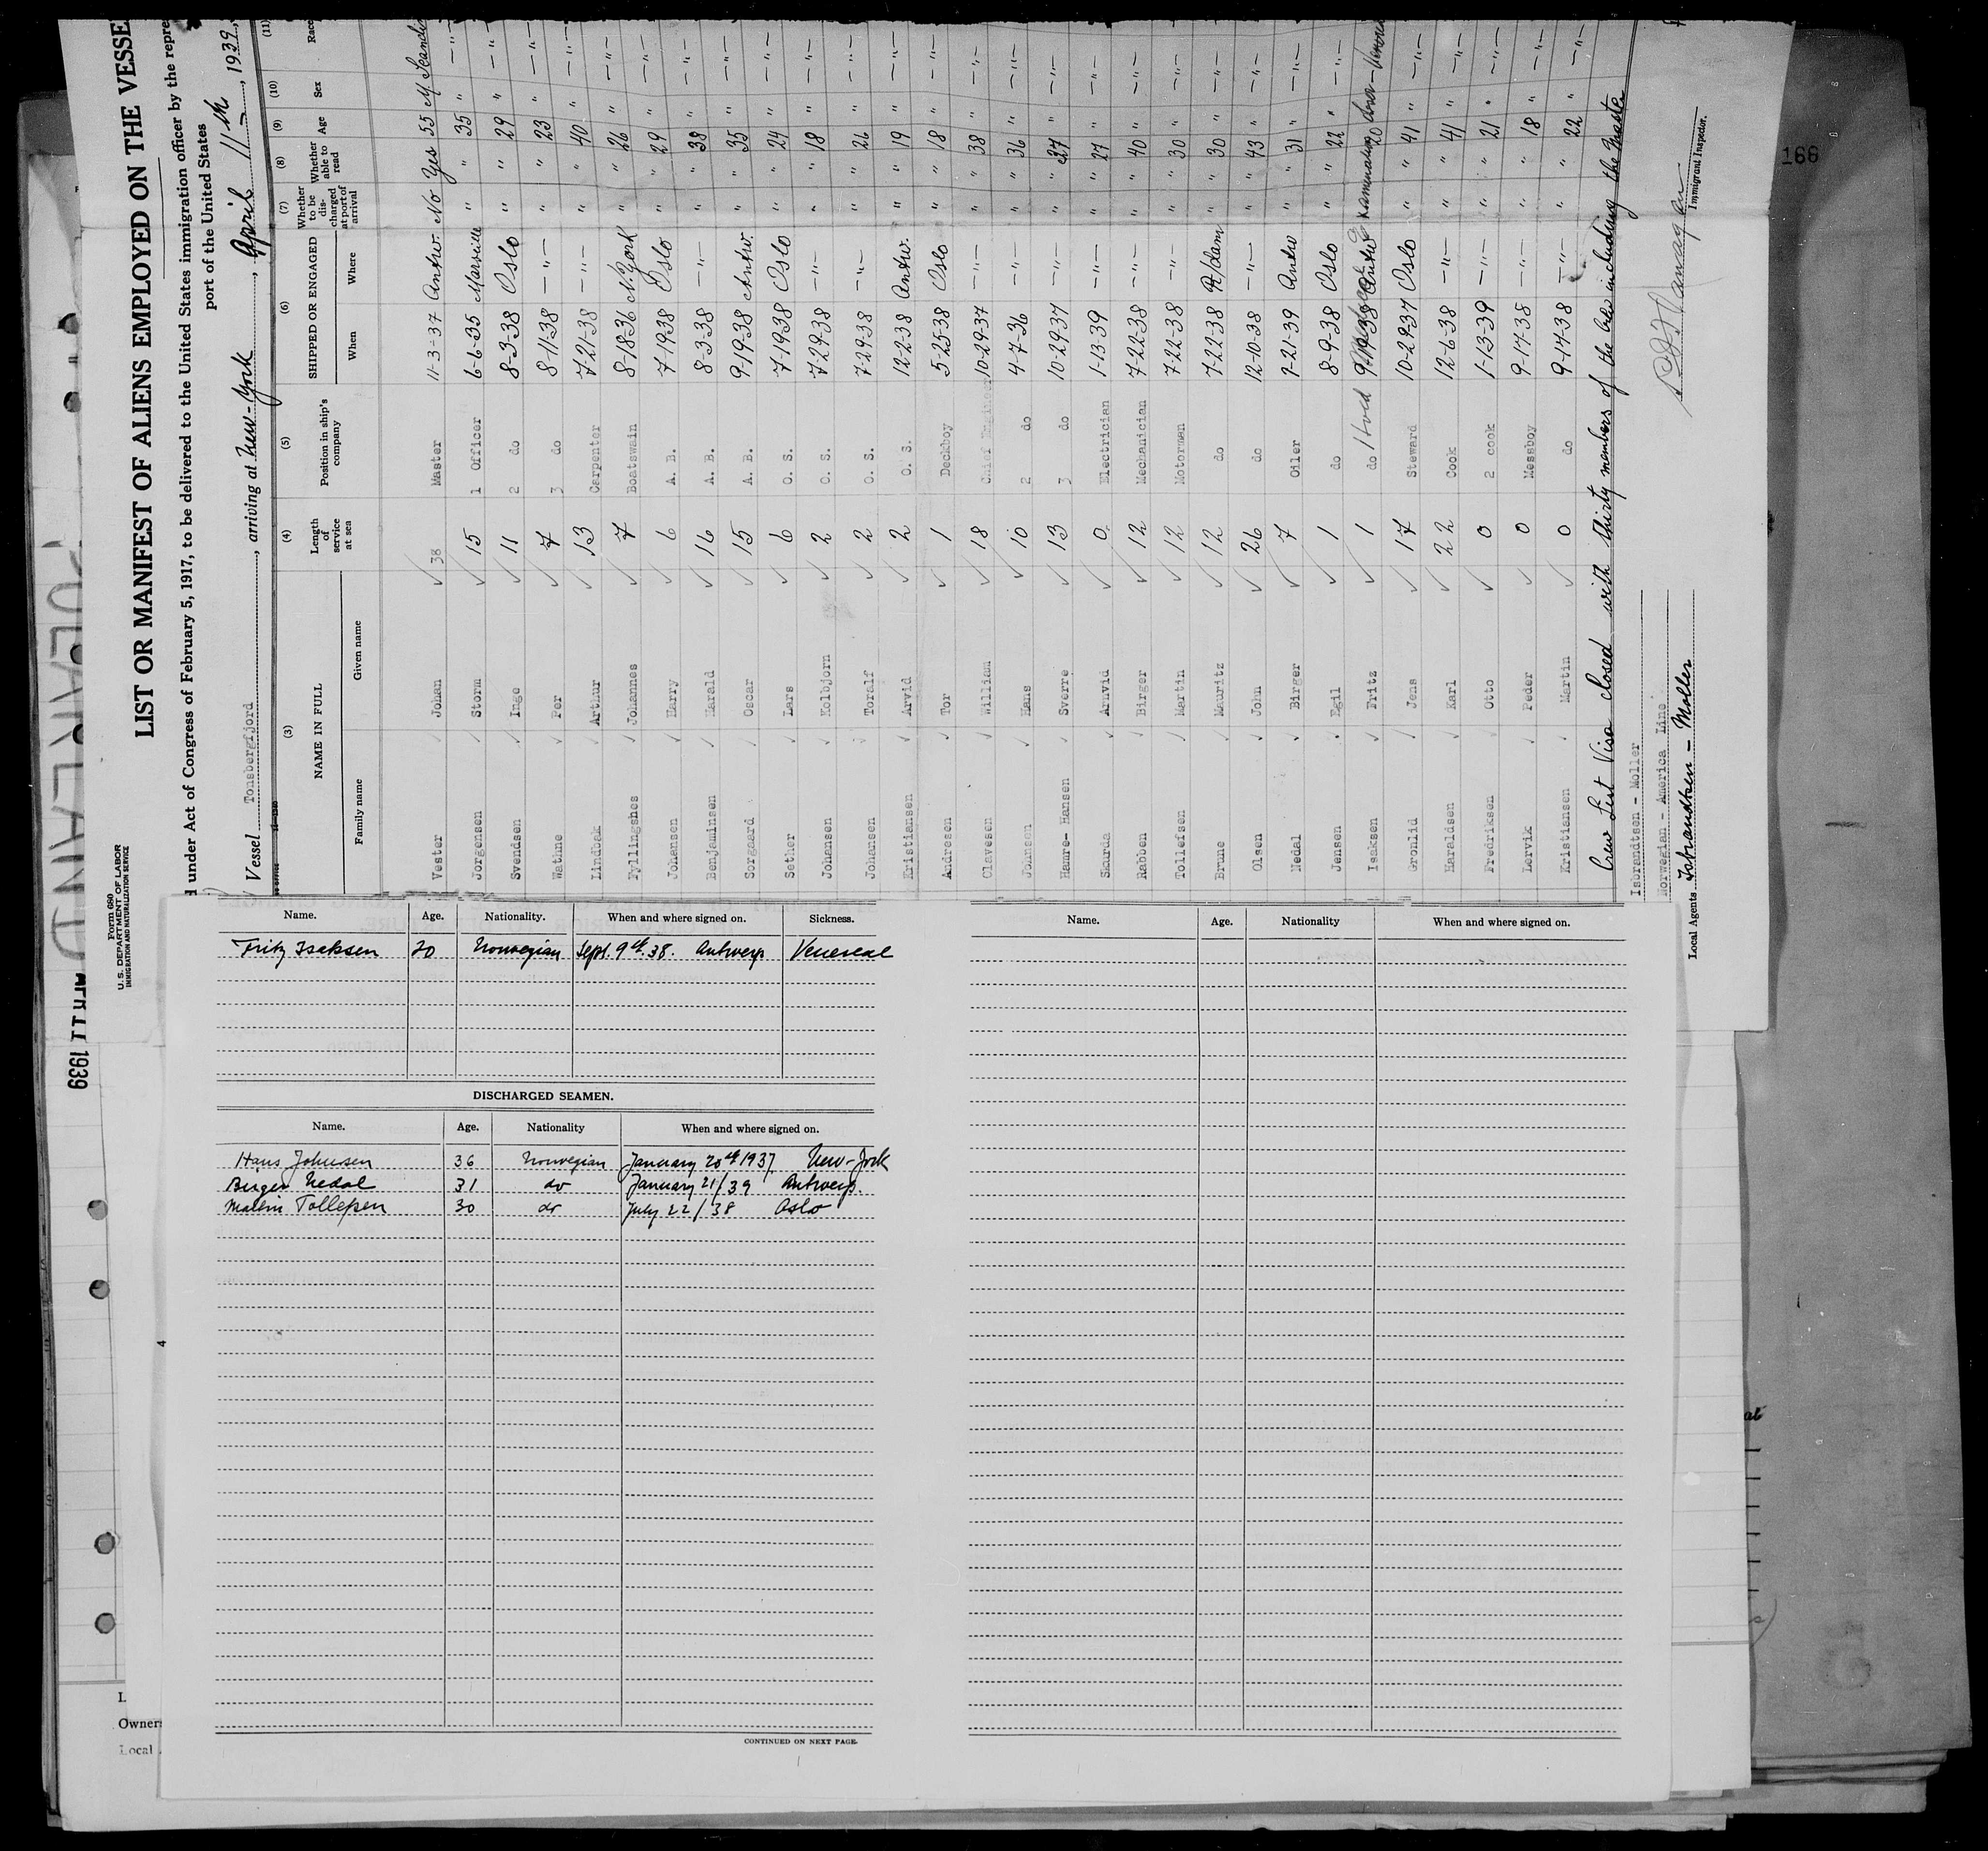 LIST OR MANIFEST OF ALIENS EMPLOYED ON THE VESSE
Form 680
U. S. DEPARTMENT OF LABOR
IMMIGRATION AND NATURALIZATION SERVICE
d under Act of Congress of February 5, 1917, to be delivered to the United States immigration officer by the repre
port of the United States
Vessel Tonsbergfjord, arriving at New-York, April 11th, 1939,
(3) (4) (5) (6) (7) (8) (9) (10) (11)
NAME IN FULL Length of service at sea Position in ship's company SHIPPED OR ENGAGED Whether to be discharged at port of arrival Whether able to read Age Sex Race
Family name Given name When Where
Vester Johan 38 Master 11-3-37 Antw. No Yes 55 M Scandi
Jorgensen Storm 15 1 Officer 6-6-35 Marseille " " 35 " -"-
Svendsen Inge 11 2 do 8-3-38 Oslo " " 29 " -"-
Wathne Per 7 3 do 8-11-38 -"- " " 23 " -"-
Lindbak Arthur 13 Carpenter 7-21-38 -"- " " 40 " -"-
Fyllingsnes Johannes 7 Boatswain 8-18-36 N.York " " 26 " -"-
Johansen Harry 6 A. B. 7-19-38 Oslo " " 29 " -"-
Benjaminsen Harald 16 A. B. 8-3-38 -"- " " 38 " -"-
Sorgaard Oscar 15 A. B. 9-19-38 Antw. " " 35 " -"-
Sether Lars 6 O. S. 7-19-38 Oslo " " 24 " -"-
Johansen Kolbjorn 2 O. S. 7-29-38 -"- " " 18 " -"-
Johansen Toralf 2 O. S. 7-29-38 -"- " " 26 " -"-
Kristiansen Arvid 2 O. S. 12-2-38 Antw. " " 19 " -"-
Andresen Tor 1 Deckboy 5-25-38 Oslo " " 18 " -"-
Olavesen William 18 Chief Engineer 10-29-37 -"- " " 38 " -"-
Johnsen Hans 10 2 do 4-7-36 -"- " " 36 " -"-
Hamre- Hansen Sverre 13 3 do 10-29-37 -"- " " 37 " -"-
Skurda Arnvid 0 Electrician 1-13-39 -"- " " 27 " -"-
Rabben Birger 12 Mechanician 7-22-38 -"- " " 40 " -"-
Tollefsen Martin 12 Motorman 7-22-38 -"- " " 30 " -"-
Brune Mauritz 12 do 7-22-38 R/dam " " 30 " -"-
Olsen John 26 do 12-10-38 -"- " " 43 " -"-
Nedal Birger 7 Oiler 1-21-39 Antw " " 31 " -"-
Jensen Egil 1 do 8-9-38 Oslo " " 22 " -"-
Isaksen Fritz 1 do 9-9-38 Antw 20
Gronlid Jens 17 Steward 10-29-37 Oslo " " 41 " -"-
Haraldsen Karl 22 Cook 12-6-38 -"- " " 41 " -"-
Fredriksen Otto 0 2 cook 1-13-39 -"- " " 21 " -"-
Lervik Peder 0 Messboy 9-14-38 -"- " " 18 " -"-
Kristiansen Martin 0 do 9-14-38 -"- " " 22 " -"-
Crew List Visa closed with thirty members of the crew including the Master
Isbrandtsen - Moller
Norwegian - America Line
Local Agents Isbrandtsen - Moller
Immigrant Inspector.
166
APR 11 1939
Name. Age. Nationality. When and where signed on. Sickness.
Fritz Isaksen 20 Norwegian Sept. 9th. 38. Antwerp Venereal
DISCHARGED SEAMEN.
Name. Age. Nationality When and where signed on.
Hans Johnsen 36 Norwegian January 20th 1937 New-York
Birger Nedal 31 do January 21/39 Antwerp.
Martin Tollefsen 30 do July 22/38 Oslo
CONTINUED ON NEXT PAGE.
Name. Age. Nationality When and where signed on.
4
L.
Owners
Local